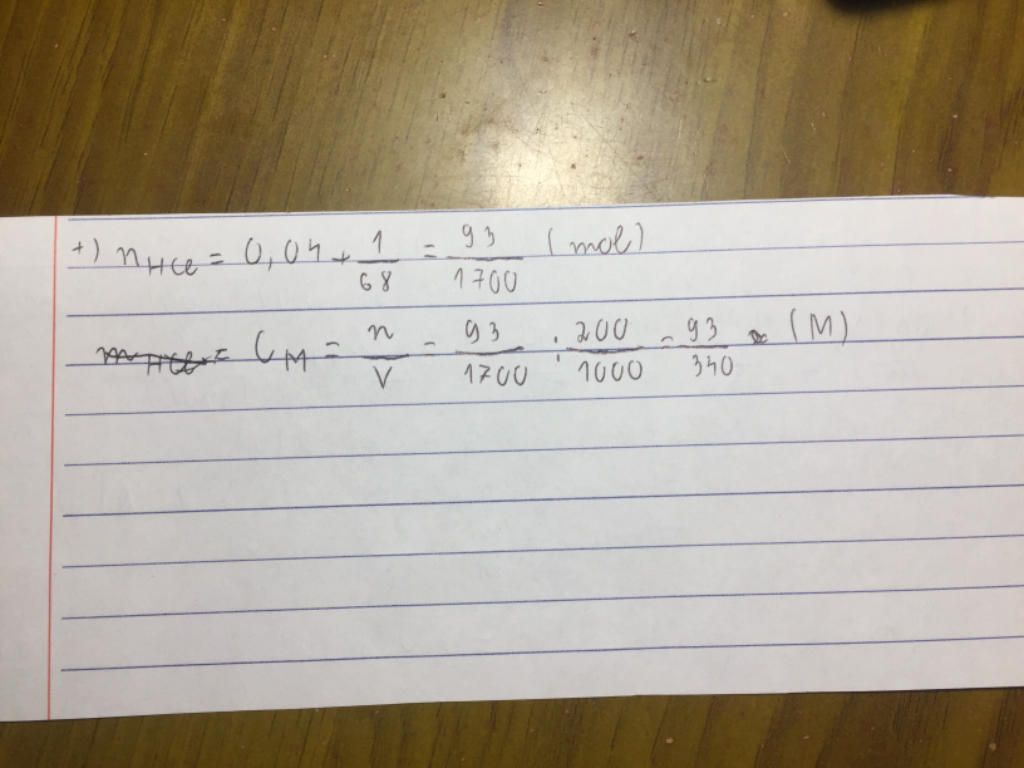 +) nHCl = 0,04 + 1/68 = 93/1700 (mol)
mHCl = CM = n/V = 93/1700 : 200/1000 = 93/340 (M)